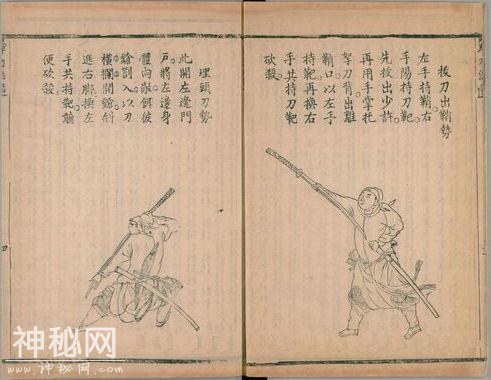 拔刀出鞘勢
左手持鞘右
手陽持刀靶
先拔出少許
再用手掌托
拏刀背出離
鞘口以左手
持靶再換右
手共持刀靶
砍殺
埋頭刀勢
此開左邊門
戶將左邊身
體向敵餌彼
鎗劄入以刀
橫攔開鎗斜
進右脚換左
手共持靶聽
便砍殺
神秘网
www.神秘网.com